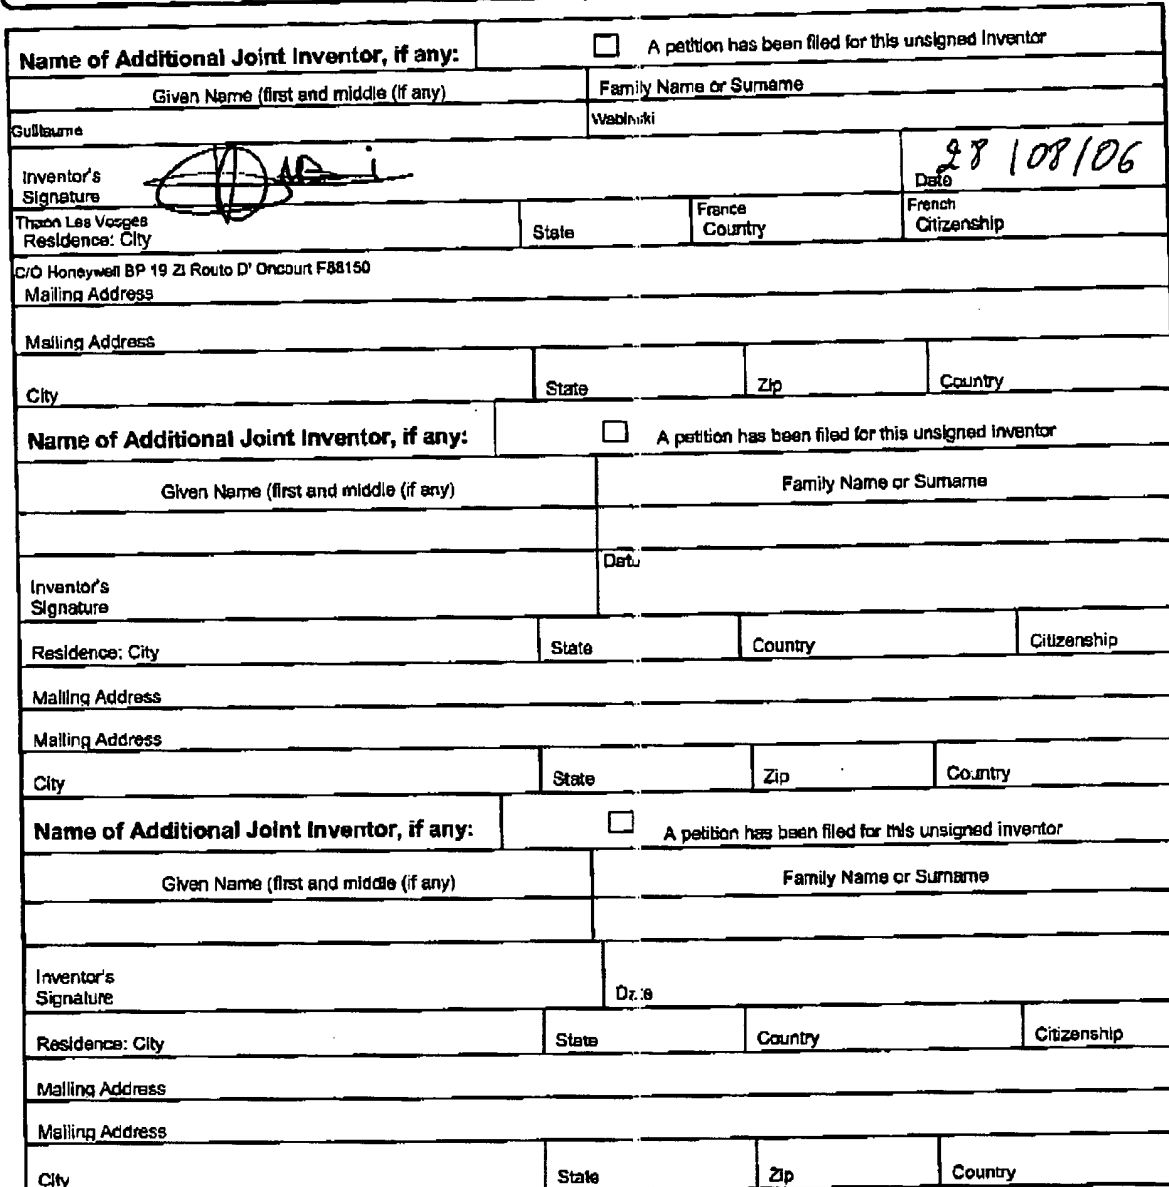 Name of Additional Joint Inventor, if any: A petition has been filed for this unsigned inventor
Given Name (first and middle (if any) Family Name or Surname
Guillaume
Inventor's
Signature
Date 28/08/06
Thaon Les Vosges France French
Residence: City State Country Citizenship
C/O Honeywell BP 19 ZI Routo D' Oncourt F88150
Mailing Address
Mailing Address
City State Zip Country
Name of Additional Joint Inventor, if any: A petition has been filed for this unsigned inventor
Given Name (first and middle (if any) Family Name or Surname
Date
Inventor's
Signature
Residence: City State Country Citizenship
Mailing Address
Mailing Address
City State Zip Country
Name of Additional Joint Inventor, if any: A petition has been filed for this unsigned inventor
Given Name (first and middle (if any) Family Name or Surname
Inventor's
Signature Date
Residence: City State Country Citizenship
Mailing Address
Mailing Address
City State Zip Country